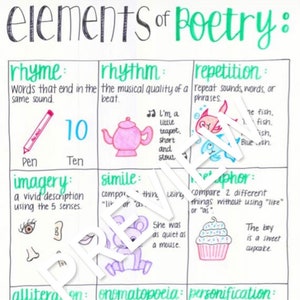 elements of poetry:
rhyme:
Words that end in the
same sound.
10
Pen Ten
rhythm:
the musical quality of a
beat.
I'm a
little
teapot,
short
and
stout
repetition:
repeat sounds, words, or
phrases.
fish,
fish,
fish,
Blue fish
imagery:
a vivid description
using the 5 senses.
simile:
compare thing using
"like" or "as".
She was
as quiet
as a
mouse.
metaphor:
compare 2 different
things without using "like"
or "as".
The boy
is a
sweet
cupcake.
alliteration:
onomatopoeia:
personification
PREVIEW